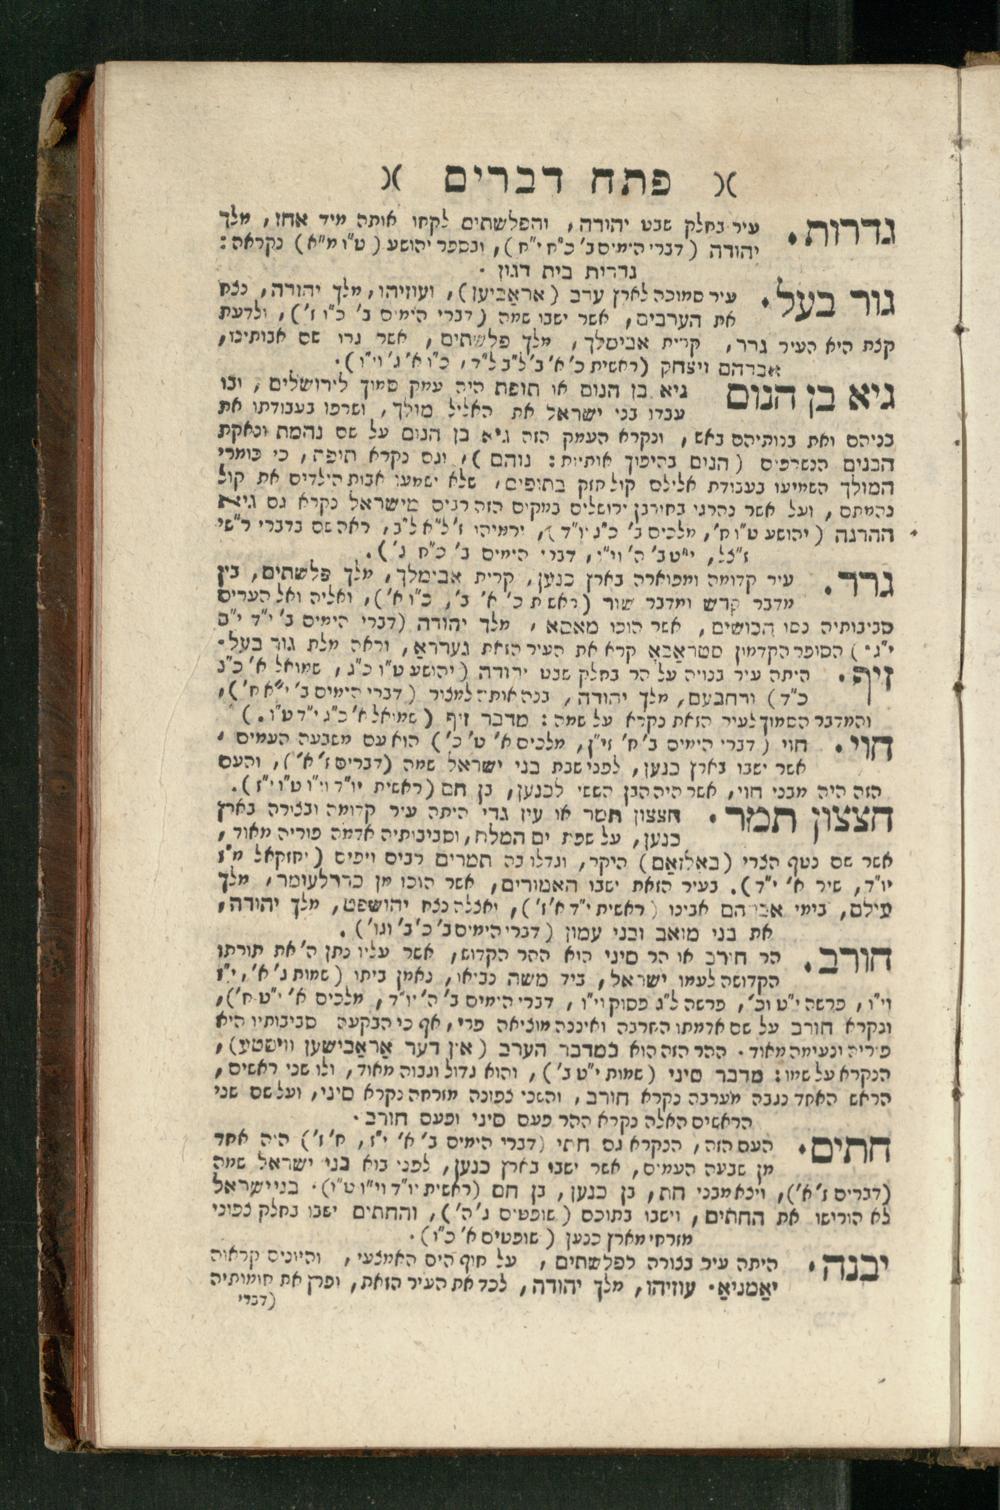 פתח דברים
גדרות. עיר בחלק שבט יהודה, והפלשתים לקחו אותה מיד אחז, מלך
יהודה (דברי הימים ב' כ"ח י"ח), ובספר יהושע (ט"ו מ"א) נקראה:
גדרות בית דגון.
גור בעל. עיר סמוכה לארץ ערב (אראַביען), ועוזיהו, מלך יהודה, נצח
את הערבים, אשר ישבו שמה (דברי הימים ב' כ"ו ז'), ולדעת
קצת היא העיר גרר, קרית אבימלך, מלך פלשתים, אשר גרו שם אבותינו,
אברהם ויצחק (ראשית כ' א' ב' ל"ב ל"ד, כ"ו א' ג' וי"ו).
גיא בן הנום גיא בן הנום או תופת היה עמק סמוך לירושלים, ובו
עבדו בני ישראל את האליל מולך, ושרפו בעבודתו את
בניהם ואת בנותיהם באש, ונקרא העמק הזה גיא בן הנום על שם נהמת ונאקת
הבנים הנשרפים (הנום בהיפוך אותיות: נוהם), וגם נקרא תופת, כי כומרי
המולך השמיעו בעבודת אלילם קול חזק בתופים, שלא ישמעו אבות הילדים את קול
נהמתם, ועל אשר נהרגו בחורבן ירושלים במקום הזה רבים מישראל נקרא גם גיא
ההרגה (יהושע ט"ו ח', מלכים ב' כ"ג יו"ד), ירמיהו ז' ל"א ל"ב, ראה שם בדברי רש"י
ז"צל, י"ט ב' ה' וי"ו, דברי הימים ב' כ"ח ג').
גרר. עיר קדומה ומפוארה בארץ כנען, קרית אבימלך, מלך פלשתים, בין
מדבר קדש ומדבר שור (ראשית כ' א' ב', כ"ו א'), ואליה ואל הערים
סביבותיה נסו הכושים, אשר הוכו מאסא, מלך יהודה (דברי הימים ב' י"ד י"ב
י"ג.) הסופר הקדמון סטראַבאָ קרא את העיר הזאת גערראַ, וראה מלת גור בעל.
זיף. היתה עיר בנויה על הר בחלק שבט יהודה (יהושע ט"ו כ"ג, שמואל א' כ"ג
כ"ד) ורחבעם, מלך יהודה, בנה אותה למצור (דברי הימים ב' י"א ח'),
והמדבר הסמוך לעיר הזאת נקרא על שמה: מדבר זיף (שמואל א' כ"ג י"ד ט"ו.)
חוי. חוי (דברי הימים ב' ח' זי"ן, מלכים א' ט' כ') הוא עם משבעה העמים,
אשר ישבו בארץ כנען, לפני שבת בני ישראל שמה (דברים ז' א'), והעם
הזה היה מבני חוי, אשר היה הבן הששי לכנען, בן חם (ראשית יו"ד וי"ו ט"ו י"ז).
חצצון תמר. חצצון תמר או עין גדי היתה עיר קדומה ובצורה בארץ
כנען, על שפת ים המלח, וסביבותיה אדמה פוריה מאוד,
אשר שם נטף הצרי (באלזאַם) היקר, וגדלו בה תמרים רבים ויפים (יחזקאל מ"ז
יו"ד, שיר א' י"ד). בעיר הזאת ישבו האמורים, אשר הוכו מן כדרלעומר, מלך
עילם, בימי אברהם אבינו (ראשית י"ד א' ז'), ואצלה נצח יהושפט, מלך יהודה,
את בני מואב ובני עמון (דברי הימים ב' כ' ב' וגו').
חורב. הר חורב או הר סיני הוא ההר הקדוש, אשר עליו נתן ה' את תורתו
הקדושה לעמו ישראל, ביד משה נביאו, נאמן ביתו (שמות ג' א', י"ז
וי"ו, פרשה י"ט וכ', פרשה ל"ג פסוק וי"ו, דברי הימים ב' ה' יו"ד, מלכים א' י"ט ח'),
ונקרא חורב על שם אדמתו החרבה ואיננה מוציאה פרי, אף כי הבקעה סביבותיו היא
פוריה ונעימה מאוד. ההר הזה הוא במדבר הערב (אין דער אראַבישען וויסטע),
הנקרא על שמו: מדבר סיני (שמות י"ט ב'), והוא גדול וגבוה מאוד, ולו שני ראשים,
הראש האחד נגבה מערבה נקרא חורב, והשני צפונה מזרחה נקרא סיני, ועל שם שני
הראשים האלה נקרא ההר פעם סיני ופעם חורב.
חתים. העם הזה, הנקרא גם חתי (דברי הימים ב' א' י"ז, ח' ז') היה אחד
מן שבעה העמים, אשר ישבו בארץ כנען, לפני בוא בני ישראל שמה
(דברים ז' א'), ויצא מבני חת, בן כנען, בן חם (ראשית יו"ד וי"ו ט"ו). בני ישראל
לא הורישו את החתים, וישבו בתוכם (שופטים ג' ה'), והחתים ישבו בחלק צפוני
מזרחי מארץ כנען (שופטים א' כ"ו).
יבנה. היתה עיר בצורה לפלשתים, על חוף הים האמצעי, והיונים קראוה
יאַמניאַ. עוזיהו, מלך יהודה, לכד את העיר הזאת, ופרץ את חומותיה
(דברי